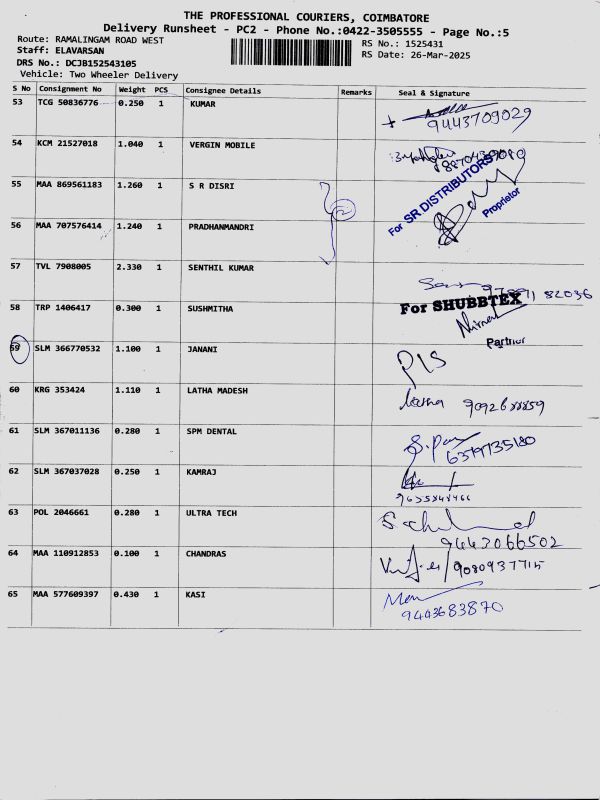 THE PROFESSIONAL COURIERS, COIMBATORE
Delivery Runsheet - PC2 - Phone No.:0422-3505555 - Page No.:5
Route: RAMALINGAM ROAD WEST
RS No.: 1525431
Staff: ELAVARSAN
RS Date: 26-Mar-2025
DRS No.: DCJB152543105
Vehicle: Two Wheeler Delivery
S No Consignment No Weight PCS Consignee Details Remarks Seal & Signature
53 TCG 50836776 0.250 1 KUMAR
9443709029
54 KCM 21527018 1.040 1 VERGIN MOBILE
55 MAA 869561183 1.260 1 S R DISRI
For SR DISTRIBUTORS
Proprietor
2
56 MAA 707576414 1.240 1 PRADHANMANDRI
57 TVL 7908005 2.330 1 SENTHIL KUMAR
58 TRP 1406417 0.300 1 SUSHMITHA
For SHUBBTEX
Partner
59 SLM 366770532 1.100 1 JANANI
P/S
60 KRG 353424 1.110 1 LATHA MADESH
Latha
61 SLM 367011136 0.280 1 SPM DENTAL
62 SLM 367037028 0.250 1 KAMRAJ
63 POL 2046661 0.280 1 ULTRA TECH
9443066502
64 MAA 110912853 0.100 1 CHANDRAS
65 MAA 577609397 0.430 1 KASI
9443683870